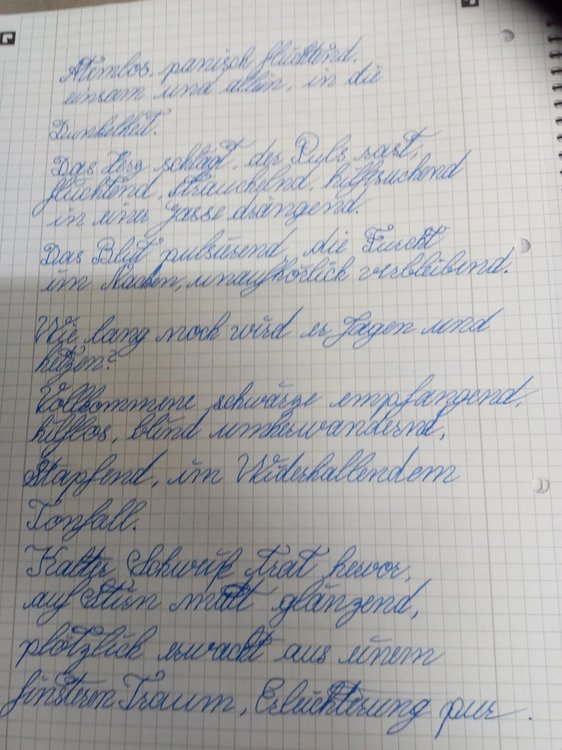 Atemlos, panisch flüchtend,
einsam und allein, in die
Dunkelheit.
Das Herz schlägt, der Puls rast,
flüchtend, strauchelnd, hilfesuchend
in einer Gasse drängend.
Das Blut pulsierend, die Furcht
im Nacken, unaufhörlich verbleibend.
Wie lang noch wird er Jagen und
hetzen?
Vollkommene schwärze empfangend,
hilflos, blind umherwandernd,
Stapfend, im Widerhallendem
Tonfall.
Kalter Schweiß trat hervor,
auf Stirn matt glänzend,
plötzlich erwacht aus einem
finsteren Traum, Erleichterung pur.